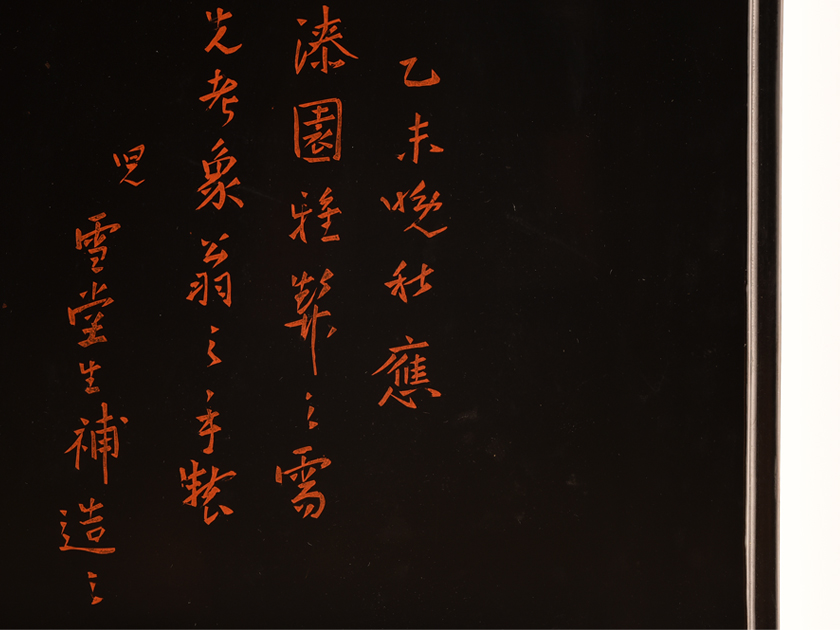 乙未晩秋應
漆園雅契之需
先考象翁之手製
児 雪堂生補造之